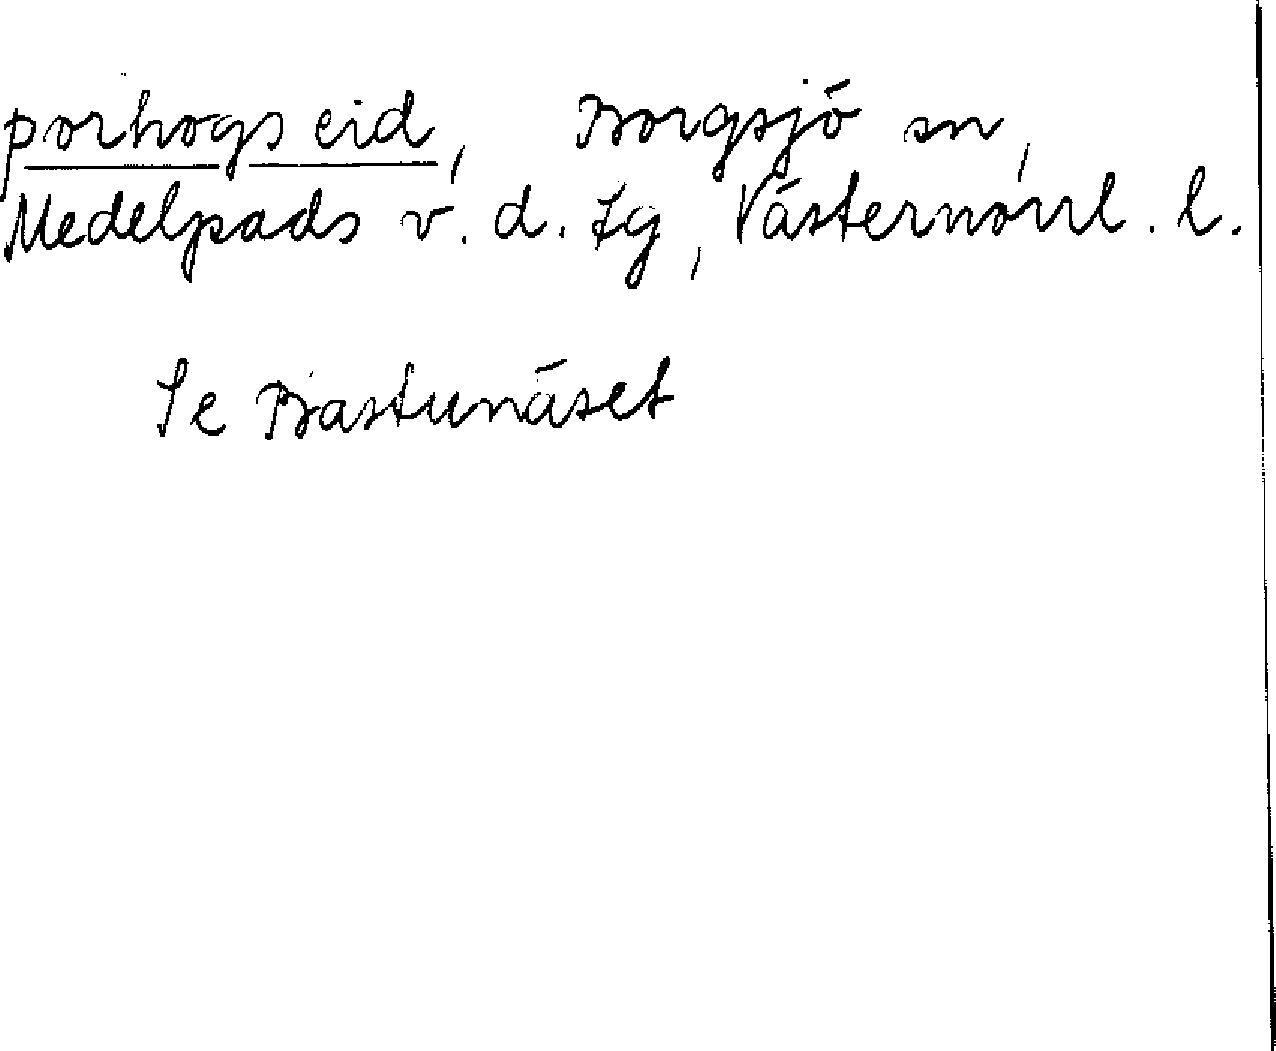 porhogs eid, Borgsjö sn,
Medelpads v. d. tg, Västernorrl. l.
Se Bastunäset